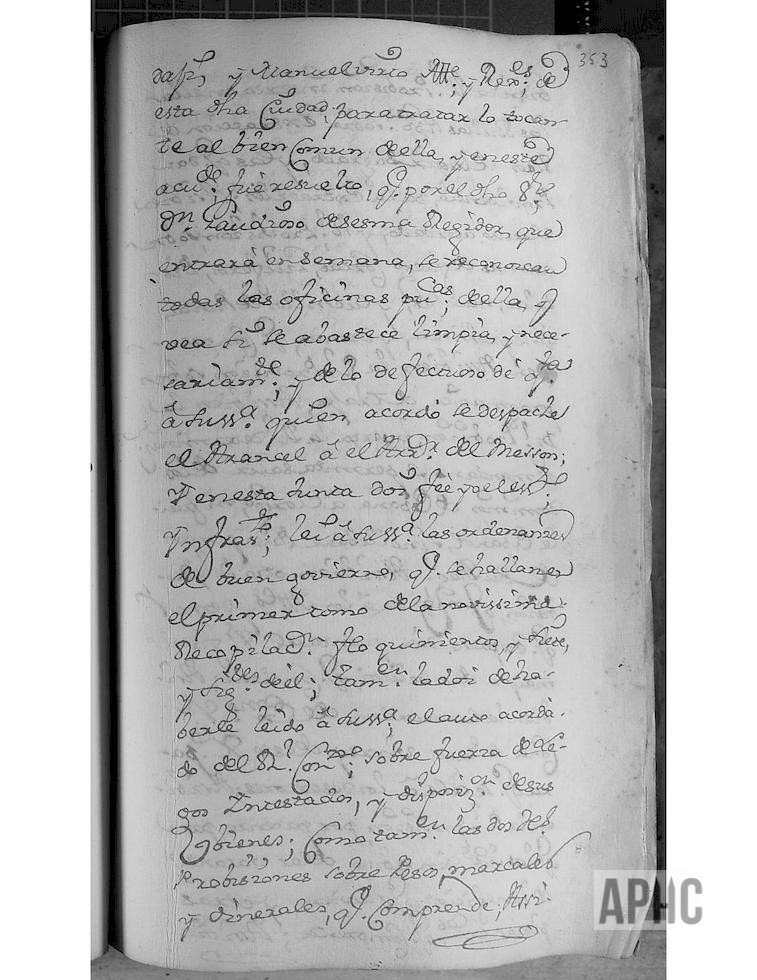 353
y Manuel virto Alle; y Rexes; de
esta dha Ciudad, para tratar lo tocan-
te al bien Comun della, y en este
acude, fue resuelto, q. por el dho Sr
Dn. Laudioso de sesma Regidor, que
entrará en semana, se reconozcan
todas las oficinas pucas; della, q
vea si se abastece limpia, y nece-
sariamte; y de lo defectuoso dé qta
á Sussa. quien acordó se despache
el Arancel á el Arrdr. del Messon;
Y en esta Junta doy feé yo el essno
Ynfrasto; lei á Sussa. las ordenanzas
de buen govierno, q. se hallan en
el primer tomo de la novissima
Recopiladn. flo quinientos, y siete,
y sigtes de él; tamen. la doi de ha-
berle leido á Sussa; el auto acorda-
do del Rl. Conzo; sobre fuerza de Le-
gos Intestados, y disposizon. de sus
bienes; Como tamen. las dos de
Probisiones sobre Pesos, marcales
y dinerales, q. Comprende; Assi
APHC